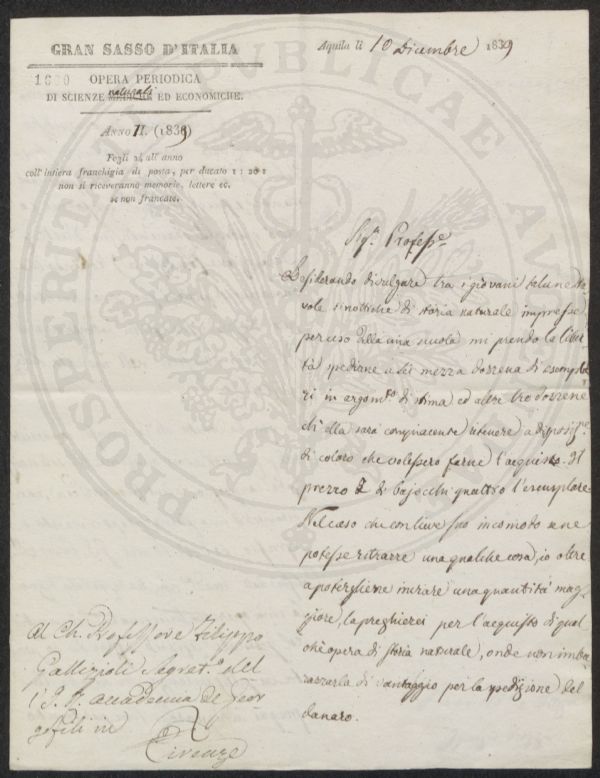 GRAN SASSO D'ITALIA
OPERA PERIODICA
naturali
DI SCIENZE MEDICHE ED ECONOMICHE.
ANNO II. (1839)
Fogli 24 all'anno
coll'intiera franchigia di posta, per ducato 1 : 20 :
non si riceveranno memorie, lettere ec.
se non francate.
Aquila li 10 Dicembre 1839
Sigr. Professe.
Desiderando divulgare tra i giovani talune ta
vole sinottiche di storia naturale impresse
per uso della mia scuola mi prendo la liber
tà spedirne a Lei mezza dozzena di esempla
ri in argomto. di stima ed altre tre dozzene
ch'ella sarà compiacente ritenere a disposize.
di coloro che volessero farne l'acquisto. Il
prezzo è di bajocchi quattro l'esemplare.
Nel caso che con lieve suo incomodo se ne
potesse ritrarre una qualche cosa, io oltre
a potergliene inviare una quantità mag
giore, la pregherei per l'acquisto di qual
che opera di storia naturale, onde non imba
razzarla di vantaggio per la spedizione del
danaro.
Al Ch. Professore Filippo
Gallizioli Segreto. del
l'I. R. Accademia de' Geor
gofili in
Firenze
PROSPERITATI PUBLICAE AUGENDAE